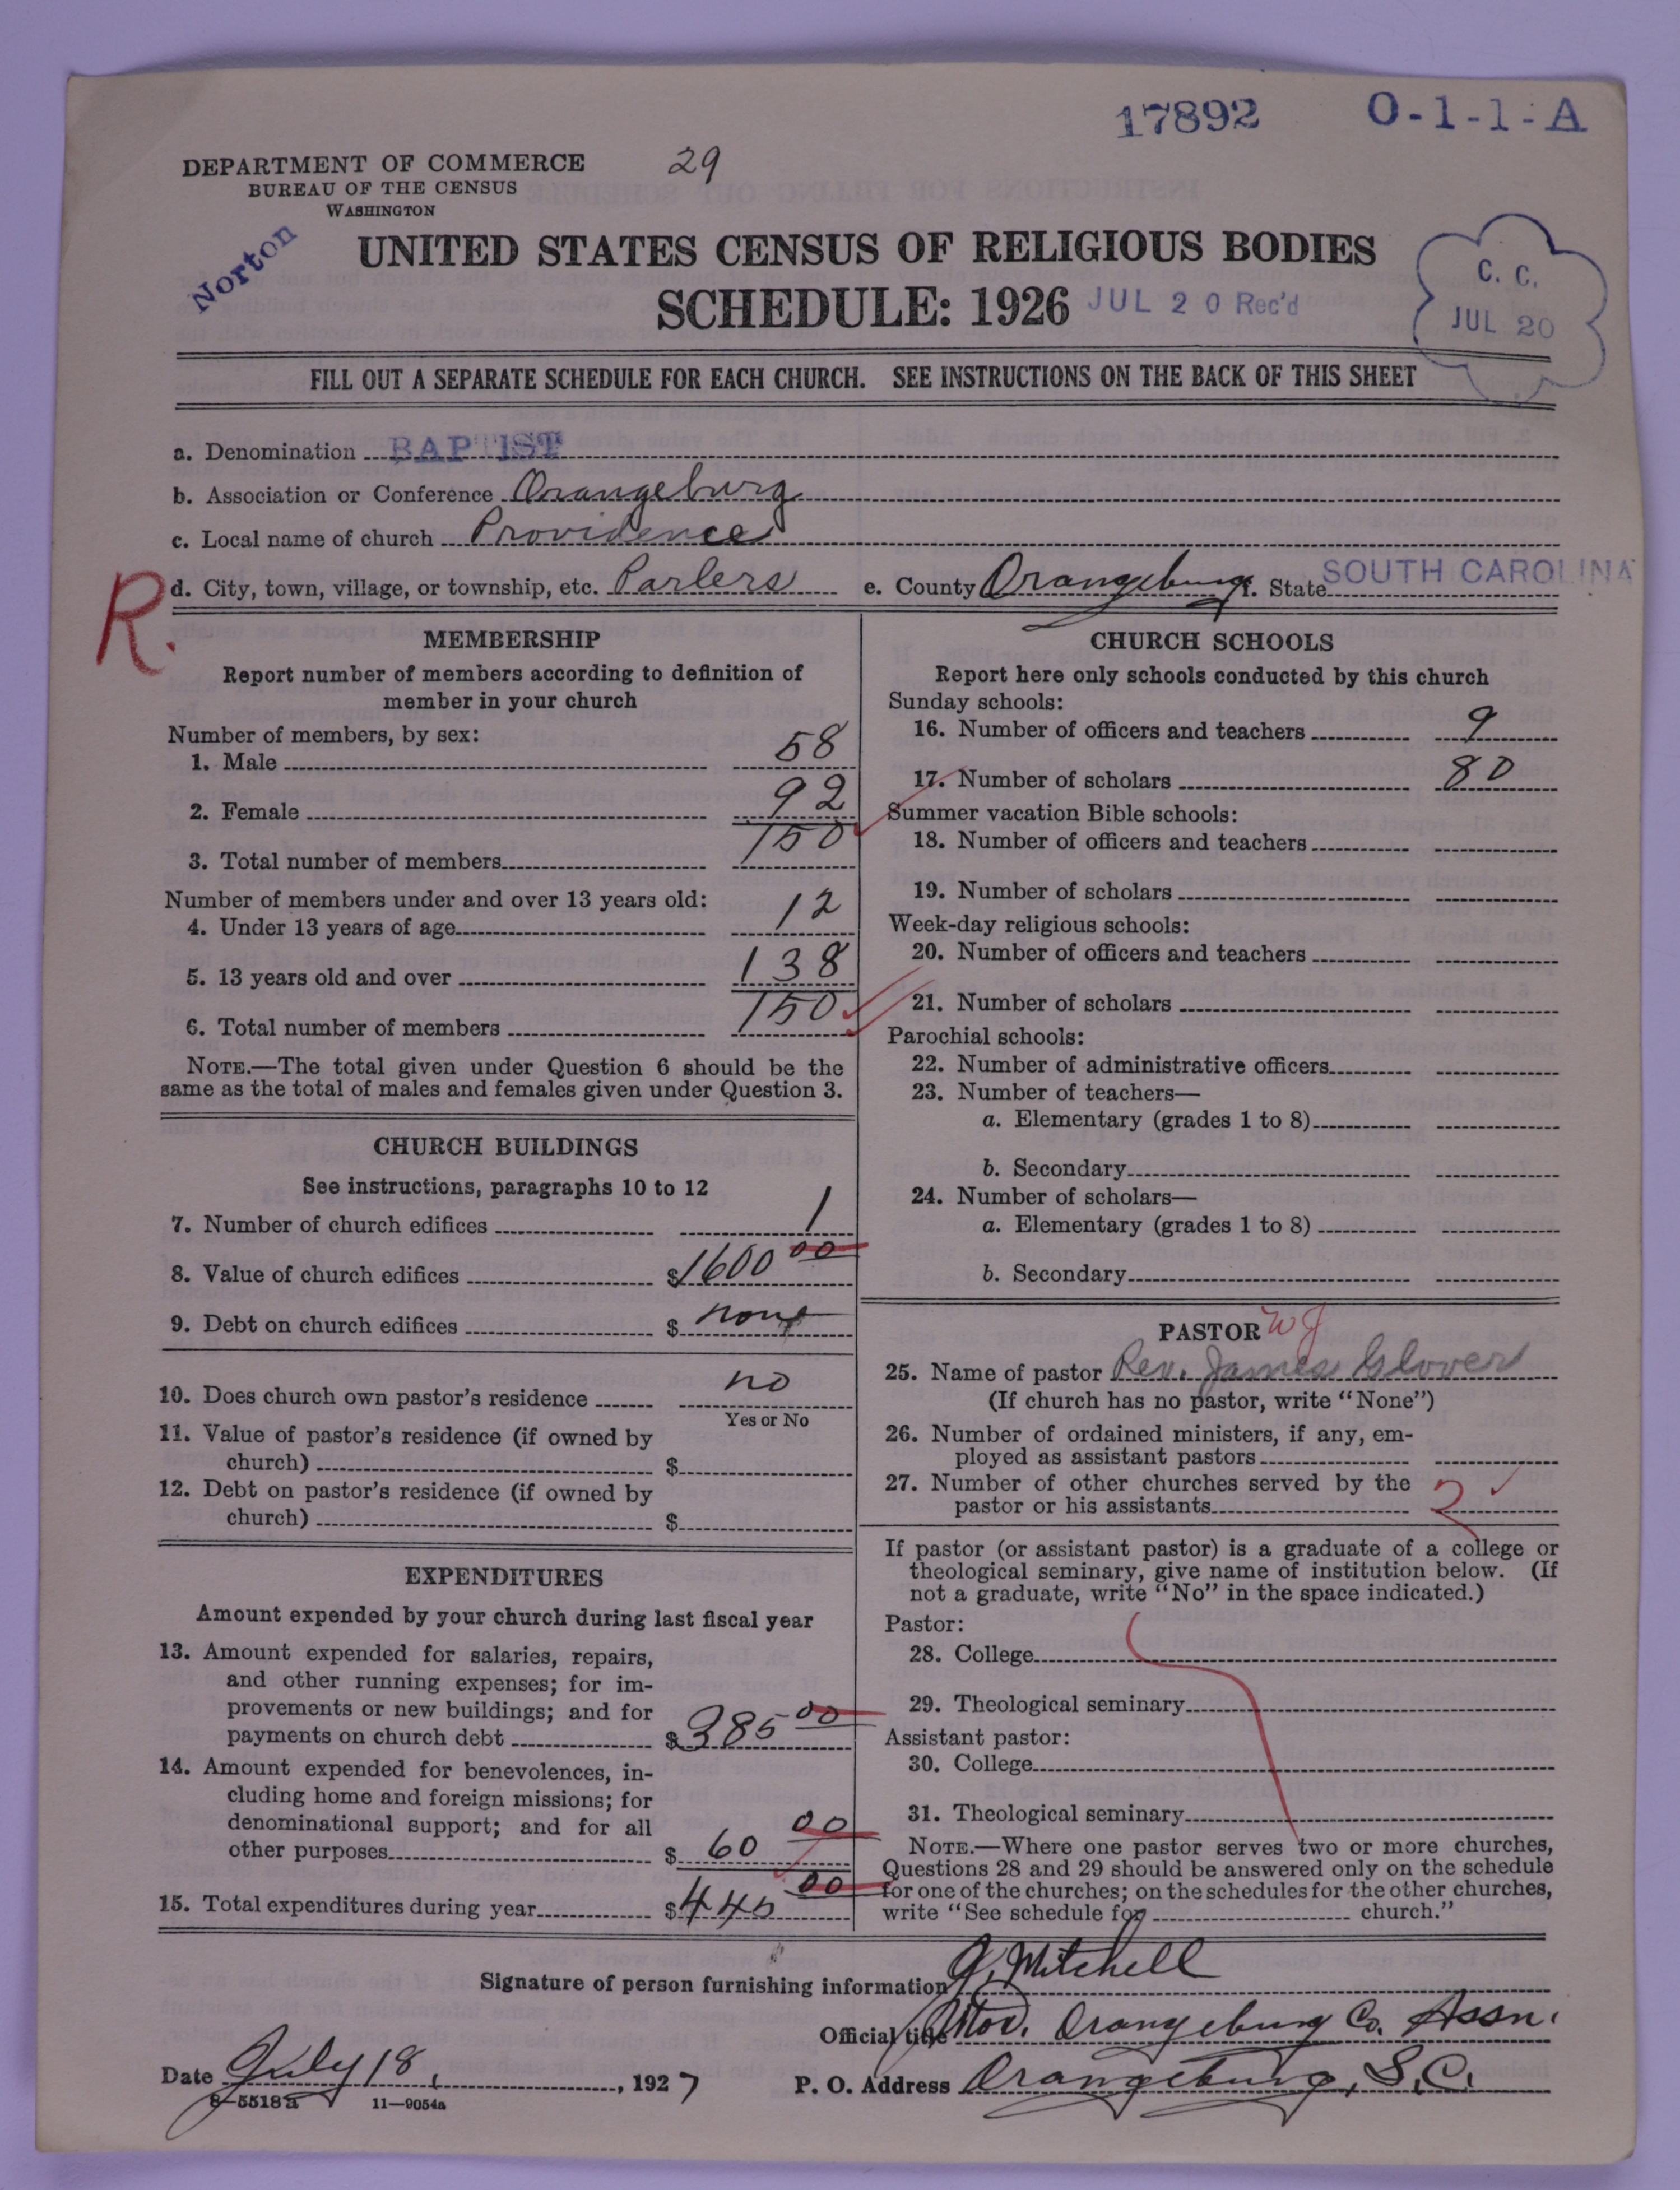 17892 O-1-1-A
DEPARTMENT OF COMMERCE 29
BUREAU OF THE CENSUS
WASHINGTON
Norton
UNITED STATES CENSUS OF RELIGIOUS BODIES
SCHEDULE: 1926 JUL 20 Rec'd
C. C.
JUL 20
FILL OUT A SEPARATE SCHEDULE FOR EACH CHURCH. SEE INSTRUCTIONS ON THE BACK OF THIS SHEET
a. Denomination BAPTIST
b. Association or Conference Orangeburg
c. Local name of church Providence
R. d. City, town, village, or township, etc. Parlers e. County Orangeburg f. State SOUTH CAROLINA
MEMBERSHIP
Report number of members according to definition of
member in your church
Number of members, by sex:
1. Male 58
2. Female 92
3. Total number of members 150
Number of members under and over 13 years old:
4. Under 13 years of age 12
5. 13 years old and over 138
6. Total number of members 150
NOTE.—The total given under Question 6 should be the
same as the total of males and females given under Question 3.
CHURCH BUILDINGS
See instructions, paragraphs 10 to 12
7. Number of church edifices 1
8. Value of church edifices $1600 00
9. Debt on church edifices $ none
10. Does church own pastor's residence no
Yes or No
11. Value of pastor's residence (if owned by
church) $
12. Debt on pastor's residence (if owned by
church) $
EXPENDITURES
Amount expended by your church during last fiscal year
13. Amount expended for salaries, repairs,
and other running expenses; for im-
provements or new buildings; and for
payments on church debt $385 00
14. Amount expended for benevolences, in-
cluding home and foreign missions; for
denominational support; and for all
other purposes $ 60 00
15. Total expenditures during year $445 00
CHURCH SCHOOLS
Report here only schools conducted by this church
Sunday schools:
16. Number of officers and teachers 9
17. Number of scholars 80
Summer vacation Bible schools:
18. Number of officers and teachers
19. Number of scholars
Week-day religious schools:
20. Number of officers and teachers
21. Number of scholars
Parochial schools:
22. Number of administrative officers
23. Number of teachers—
a. Elementary (grades 1 to 8)
b. Secondary
24. Number of scholars—
a. Elementary (grades 1 to 8)
b. Secondary
PASTOR W J
25. Name of pastor Rev. James Glover
(If church has no pastor, write "None")
26. Number of ordained ministers, if any, em-
ployed as assistant pastors
27. Number of other churches served by the
pastor or his assistants 2
If pastor (or assistant pastor) is a graduate of a college or
theological seminary, give name of institution below. (If
not a graduate, write "No" in the space indicated.)
Pastor:
28. College
29. Theological seminary
Assistant pastor:
30. College
31. Theological seminary
NOTE.—Where one pastor serves two or more churches,
Questions 28 and 29 should be answered only on the schedule
for one of the churches; on the schedules for the other churches,
write "See schedule for church."
Signature of person furnishing information J. Mitchell
Official title Mod. Orangeburg Co. Assn.
Date July 18, 1927 P. O. Address Orangeburg, S.C.
8—5518a 11—9054a